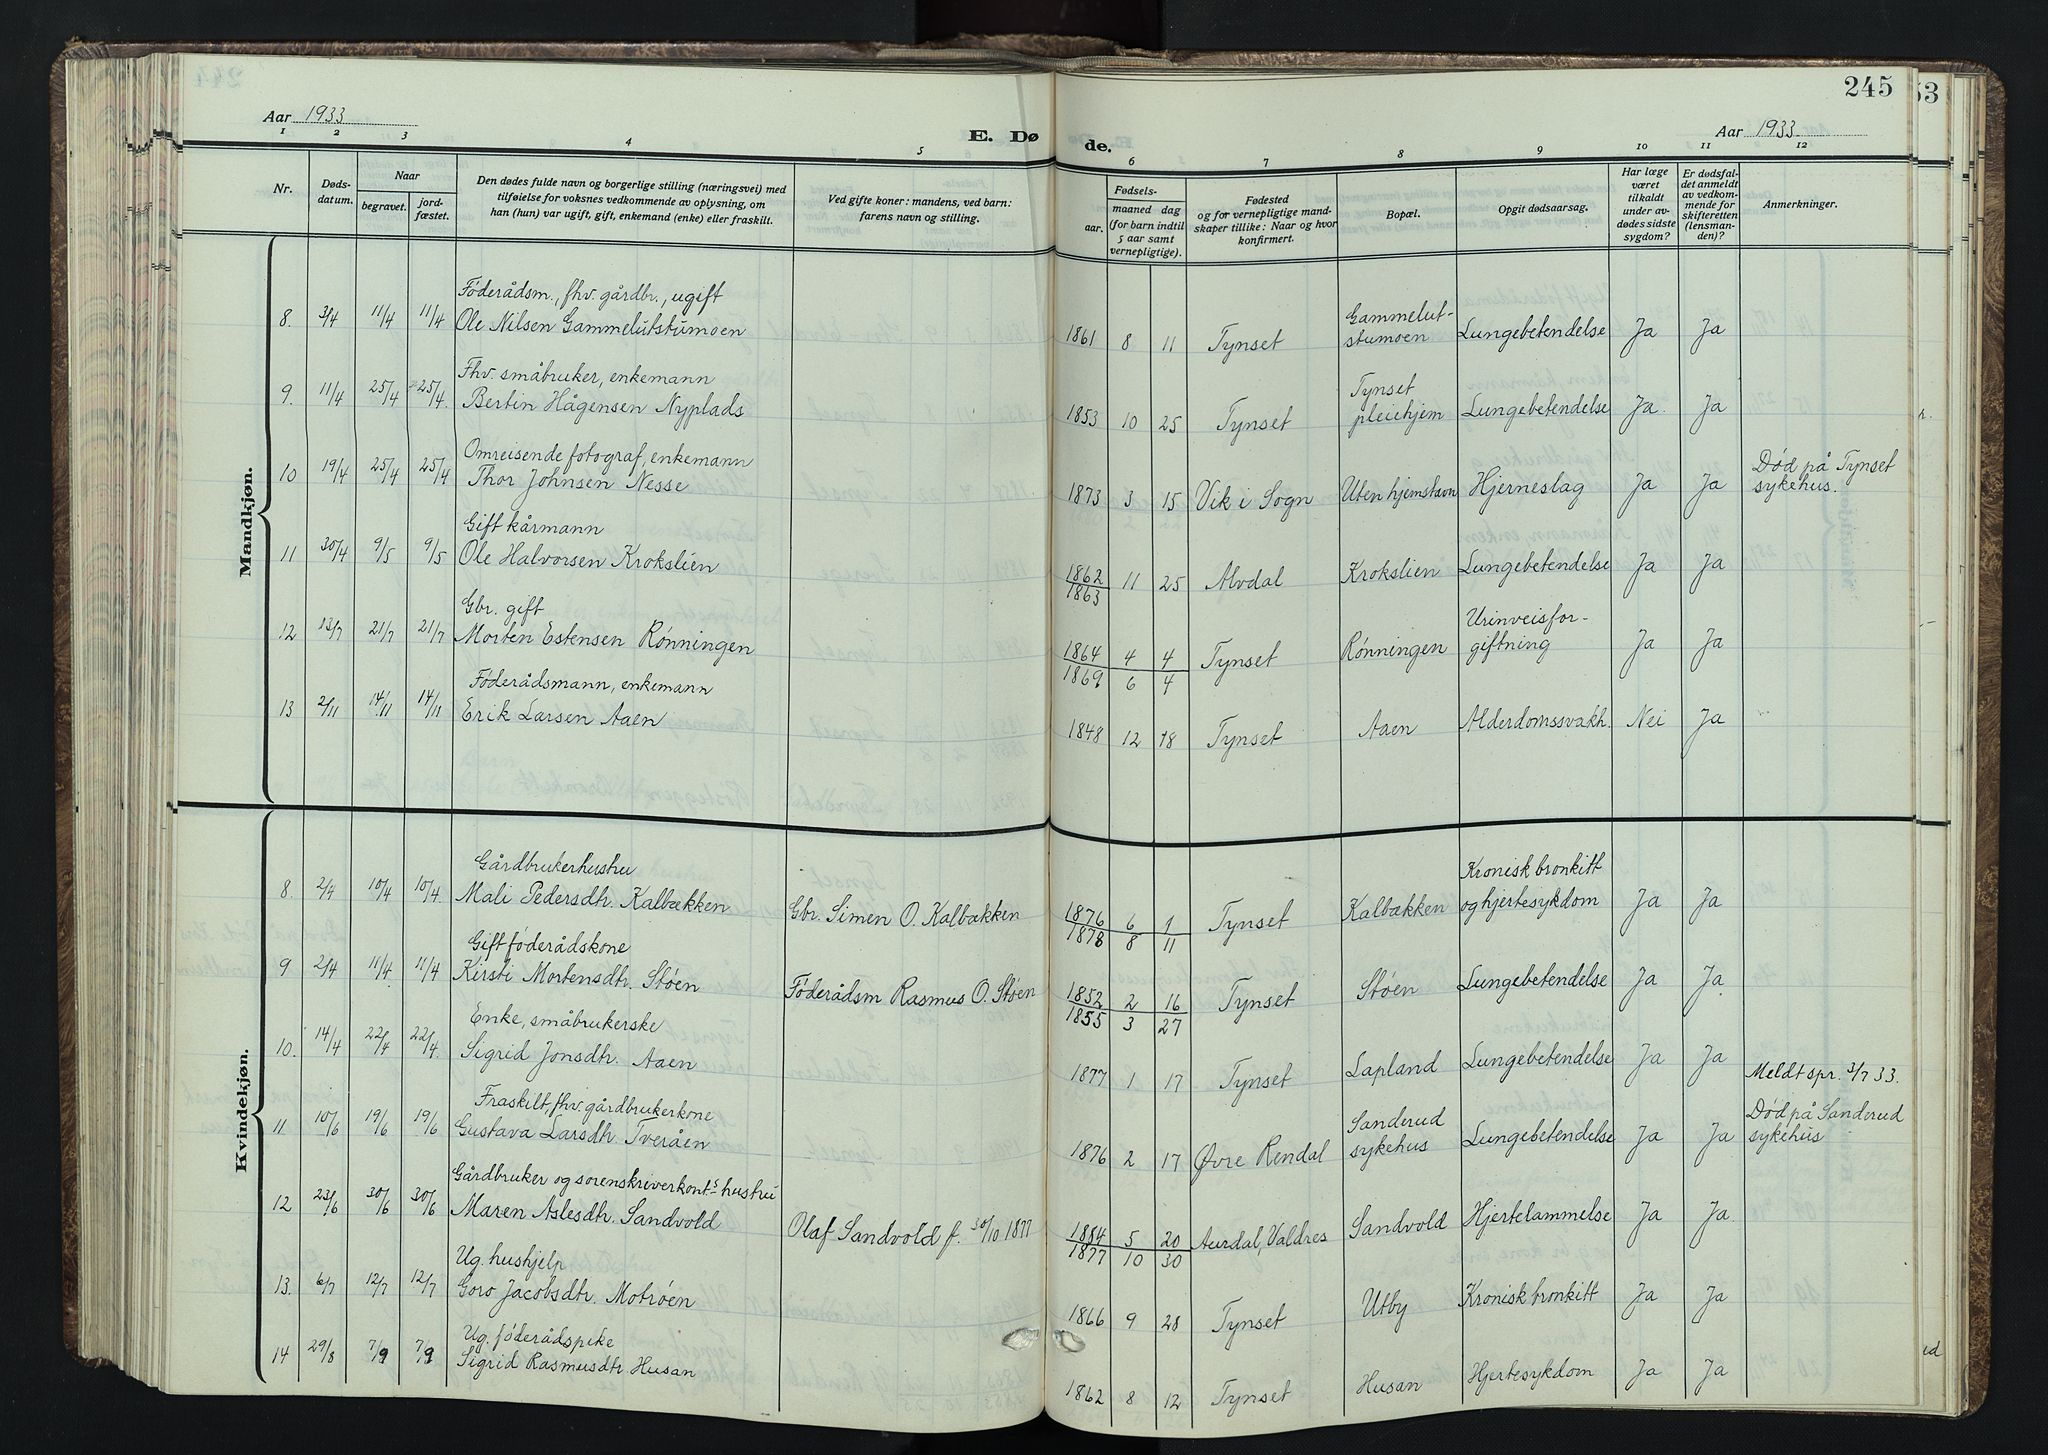 245
53
Aar 1933
E. Dø
de.
Aar 1933
1 2 3 4 5 6 7 8 9 10 11 12
Nr.
Døds-
datum.
Naar
begravet.
jord-
fæstet.
Den dødes fulde navn og borgerlige stilling (næringsvei) med
tilføielse for voksnes vedkommende av oplysning, om
han (hun) var ugift, gift, enkemand (enke) eller fraskilt.
Ved gifte koner: mandens, ved barn:
farens navn og stilling.
Fødsels-
aar.
maaned dag
(for barn indtil
5 aar samt
vernepligtige).
Fødested
og for vernepligtige mand-
skaper tillike: Naar og hvor
konfirmert.
Bopæl.
Opgit dødsaarsag.
Har læge
været
tilkaldt
under av-
dødes sidste
sygdom?
Er dødsfal-
det anmeldt
av vedkom-
mende for
skifteretten
(lensman-
den)?
Anmerkninger.
Mandkjøn.
Föderådsm., fhv. gårdbr., ugift
8. 3/4 11/4 11/4 Ole Nilsen Gammelutstumoen 1861 8 11 Tynset Gammelut-
stumoen Lungebetendelse Ja Ja
Fhv. småbruker, enkemann
9. 11/4 25/4 25/4 Bertin Hågensen Nyplads 1853 10 25 Tynset Tynset
pleiehjem Lungebetendelse Ja Ja
Omreisende fotograf, enkemann
10 19/4 25/4 25/4 Thor Johnsen Nesse 1873 3 15 Vik i Sogn Uten hjemstavn Hjerneslag Ja Ja Död på Tynset
sykehus.
Gift kårmann
11 30/4 9/5 9/5 Ole Halvorsen Krokslien 1862 11 25 Alvdal Krokslien Lungebetendelse Ja Ja
1863
Gbr. gift
12 13/7 21/7 21/7 Morten Estensen Rønningen 1864 4 4 Tynset Rønningen Urinveisfor-
giftning Ja Ja
1869 6 4
Föderådsmann, enkemann
13 2/11 14/11 14/11 Erik Larsen Aaen 1848 12 18 Tynset Aaen Alderdomssvakh. Nei Ja
Kvindekjøn.
Gårdbrukerhustru
8 2/4 10/4 10/4 Mali Pedersdtr. Kalbækken Gbr. Simen O. Kalbækken 1876 6 9 Tynset Kalbækken Kronisk bronkitt
og hjertesykdom Ja Ja
1878 8 11
Gift föderådskone
9 2/4 11/4 11/4 Kirsti Mortensdtr. Støen Föderådsm Rasmus O. Støen 1852 2 16 Tynset Støen Lungebetendelse Ja Ja
1855 3 27
Enke, småbrukerske
10. 14/4 22/4 22/4 Sigrid Jonsdtr. Aaen 1877 1 17 Tynset Lapland Lungebetendelse Ja Ja
Meldt spr. 3/7 33.
Fraskilt, fhv. gårdbrukerkone
11 10/6 19/6 19/6 Gustava Larsdtr. Tveråen 1876 2 17 Øvre Rendal Sanderud
sykehus Lungebetendelse Ja Ja Död på Sanderud
sykehus
Gårdbruker og sorenskriverkonts hustru
12 23/6 30/6 30/6 Maren Aslesdtr. Sandvold Olaf Sandvold f. 30/10 1877 1884 5 20 Aurdal, Valdres Sandvold Hjertelammelse Ja Ja
1877 10 30
Ug. hushjelp
13. 6/7 12/7 12/7 Goro Jacobsdtr. Motrøen 1866 9 28 Tynset Utby Kronisk bronkitt Ja Ja
Ug. föderådspike
14 29/8 7/9 7/9 Sigrid Rasmusdtr. Husan 1862 8 12 Tynset Husan Hjertesykdom Ja Ja